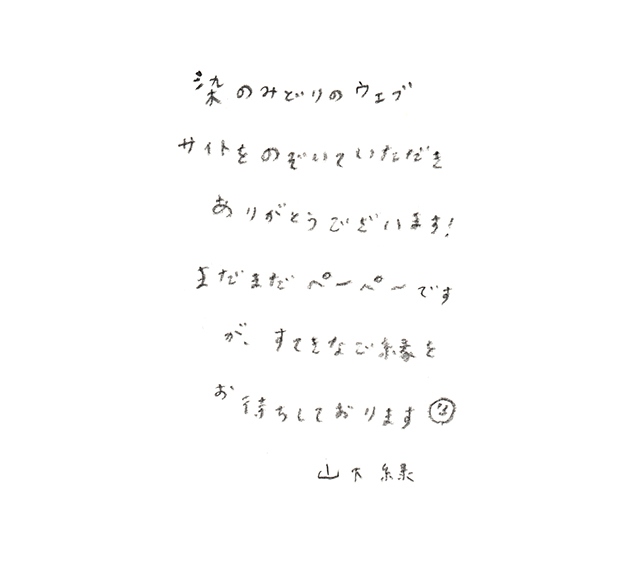 染のみどりのウェブ
サイトをのぞいていただき
ありがとうございます!
まだまだペーペーです
が、すてきなご縁を
お待ちしております
山下緑